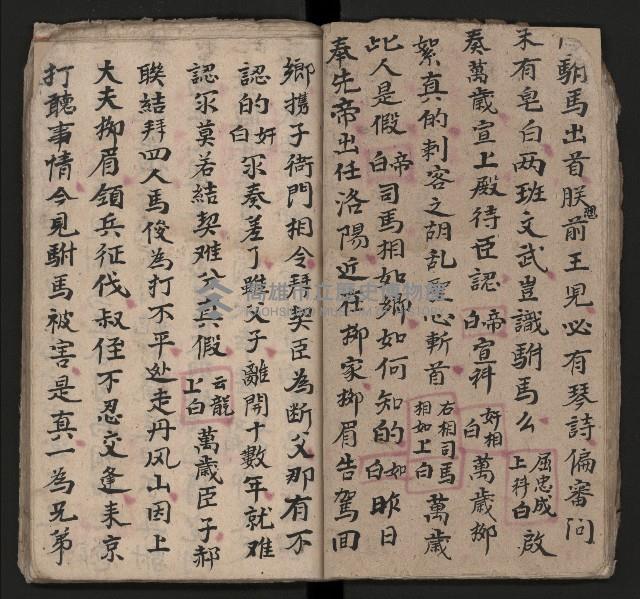 駙馬出首朕前王見必有琴詩偏審问
未有皂白两班文武豈識駙馬么 屈忠成上科白 啟
奏萬歲宣上殿待臣認 帝白 宣科 奸相白 萬歲挪
絮真的刺客之胡乱 心斬首 右相司馬相如上白 萬歲
此人是假 帝白 司馬相如鄉如何知的 如白 昨日
奉先帝出任洛陽近在挪家挪眉告駕回
鄉携子衙門相令拜契臣為断父那有不
認的 奸白 尔奏差了 父子離開十數年就难
認尔莫若結契难分真假 云龍上白 萬歲臣子郝
联結拜四人馬俊為打不平处走丹风山因上
大夫挪眉領兵征伐叔侄不忍交逢来京
打聽事情今見駙馬被害是真一為兄弟
高雄市立歷史博物館
KAOHSIUNG MUSEUM OF HISTORY